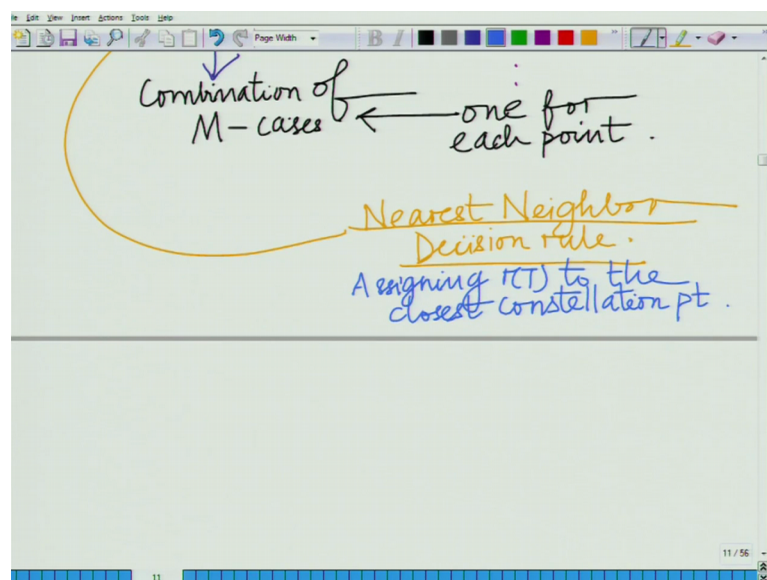 Edit View Insert Actions Tools Help
Page Width B I
Combination of
M-cases
one for
each point.
Nearest Neighbor
Decision rule.
Assigning r(T) to the
closest constellation pt.
11 / 56
11